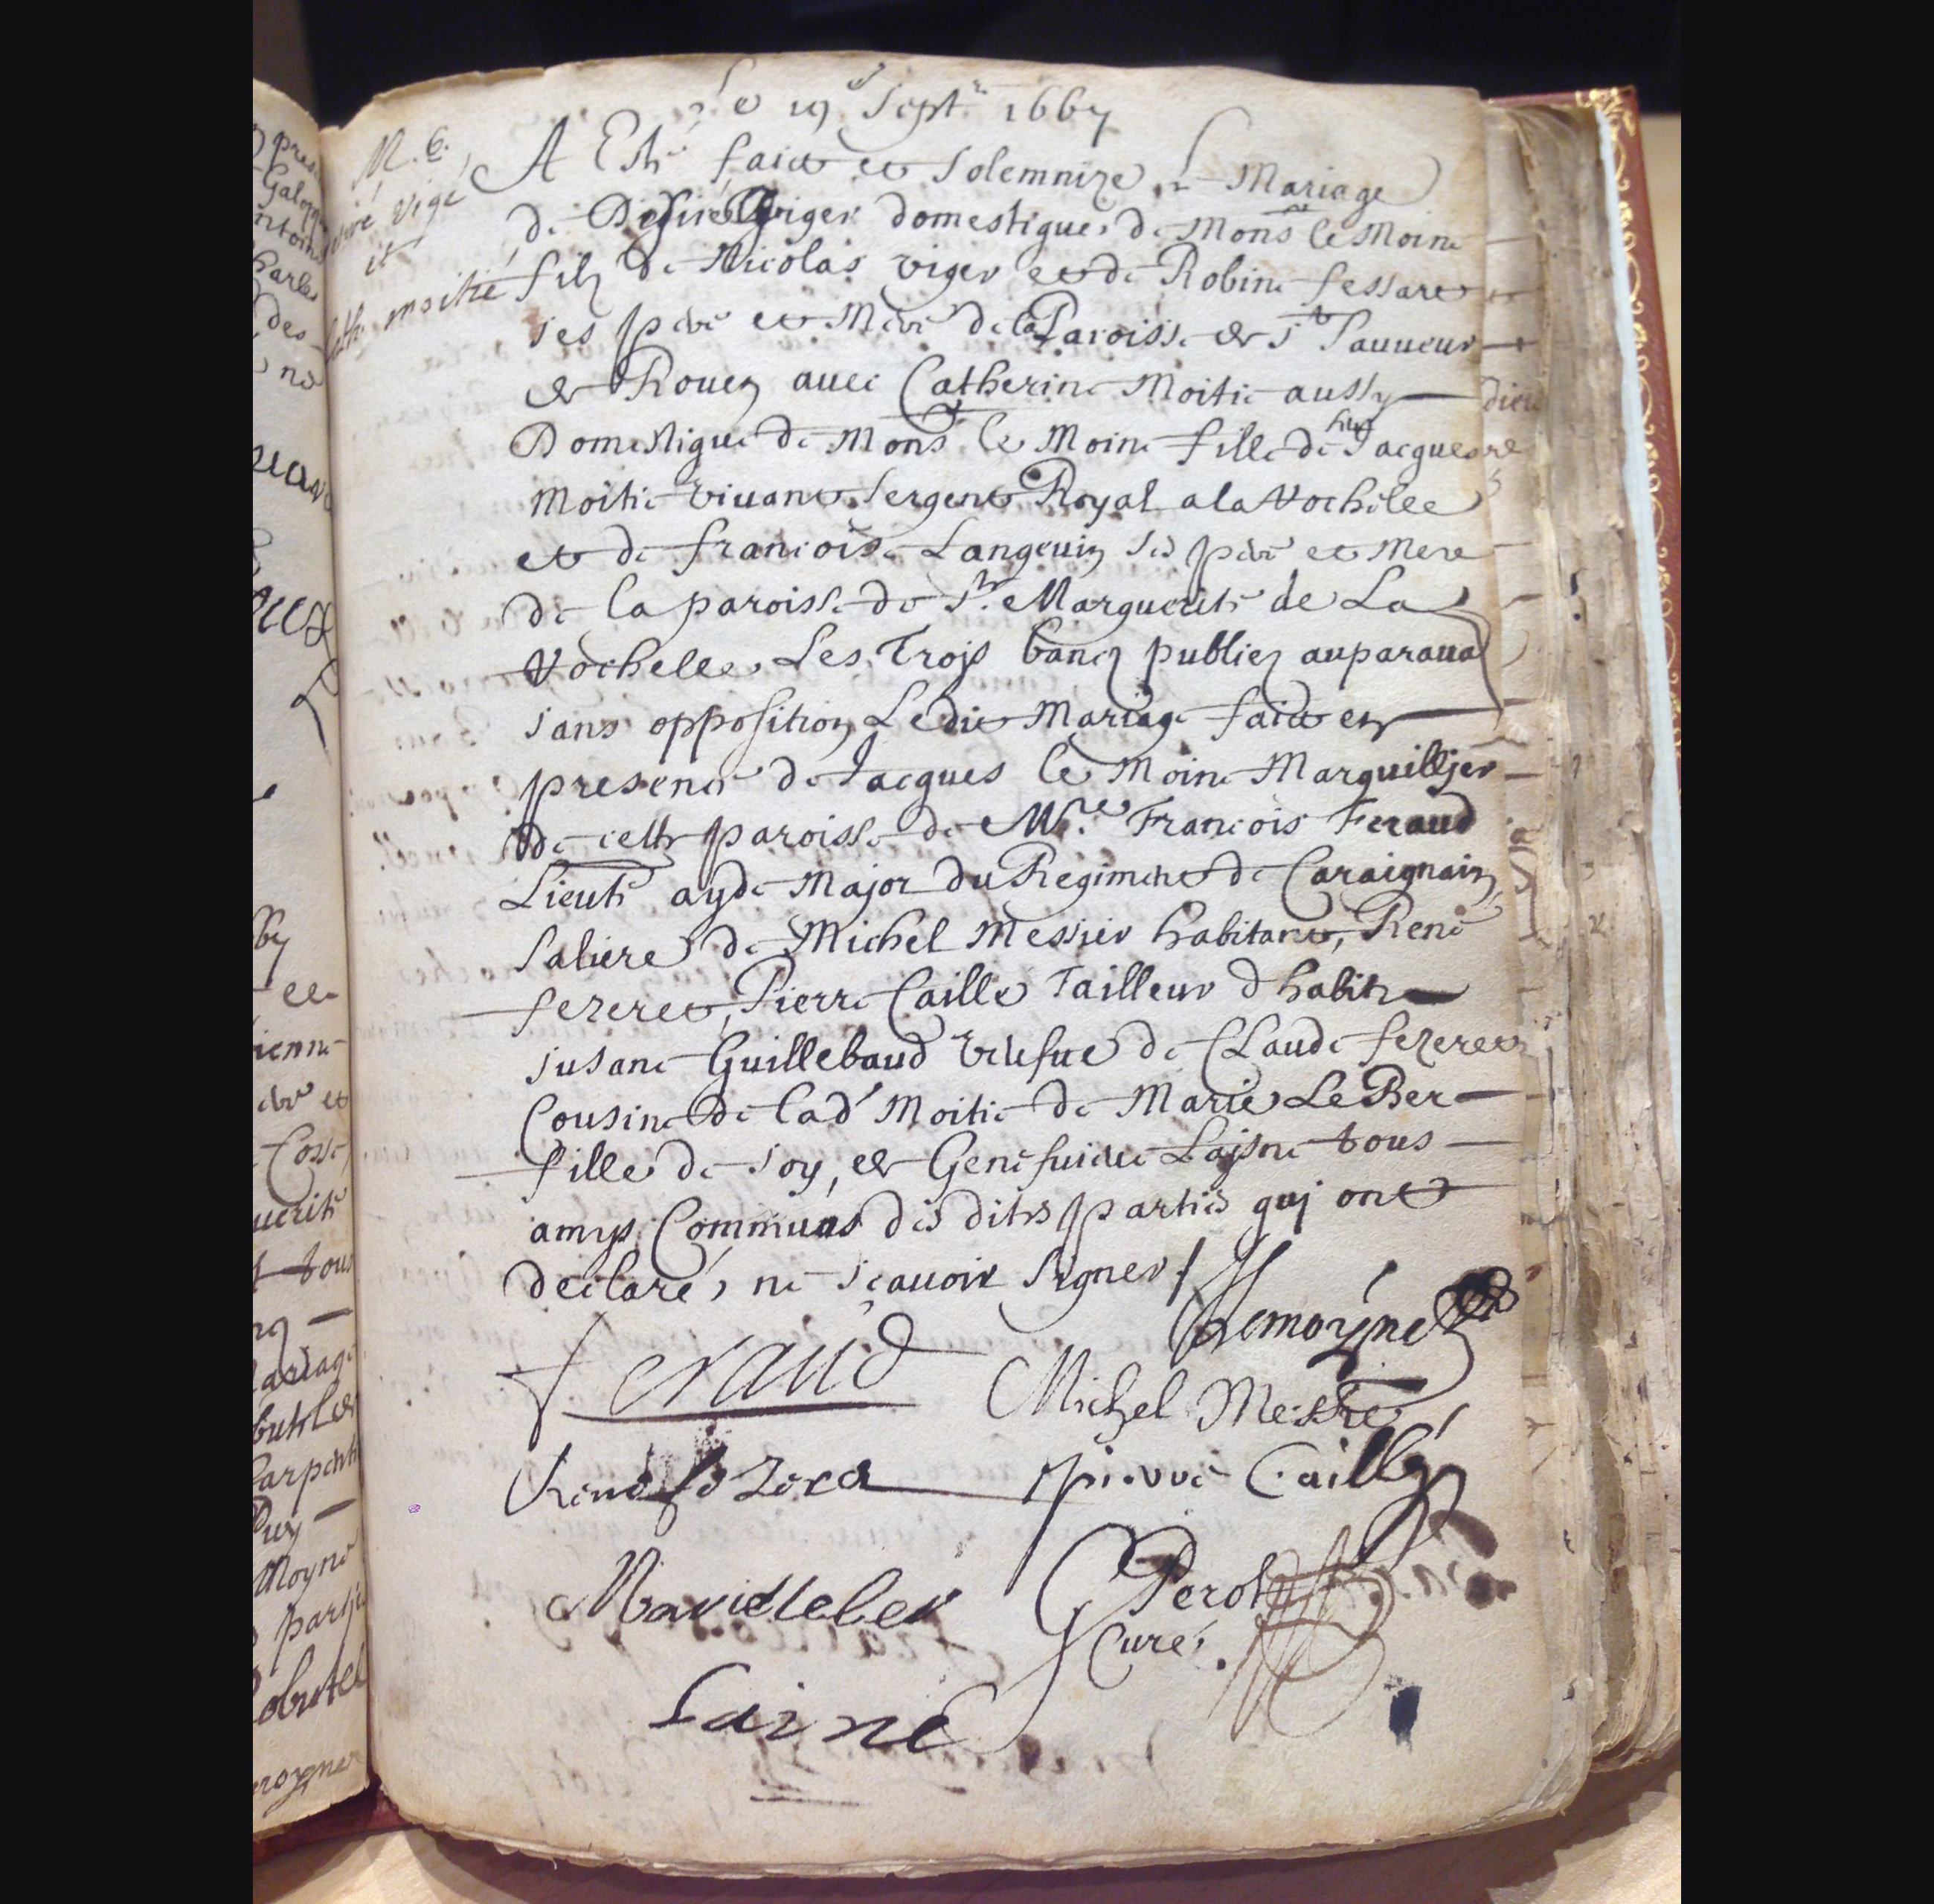 Le 19e Sept.re 1667
M. 6.
viré vigé
et
Cath. moitié
A Esté faict et solemnizé le Mariage
de Desiré Viger domestique de Monsr le Moine
filz de Nicolas viger et de Robine fessart
ses pere et Mere de la Paroisse de St Sauueur
de Rouen auec Catherine Moitie aussy
Domestique de Monsr le Moine fille de feu Jacques
Moitie viuant Sergent Royal a la Rochelle
et de francoise Langeuin ses pere et Mere
de la paroisse de Ste Marguerite de La
Rochelle Les Trois bancz publiez auparaua
sans opposition Ledit Mariage faict en
presence de Jacques le Moine Marguillier
de cette paroisse de Mre François Feraud
Lieutt ayde Major du Regiment de Caraignain
Saliere de Michel Messier habitant, René
fezeret, Pierre Caille Tailleur d habitz
susane Guillebaud veufue de Claude fezeret
Cousine de lad' Moitie de Marie Le Ber
fille de soy, et Genefuieue Laisne tous
amys Communs des dites parties qui ont
declaré ne scauoir signer /
Lemoyne
feraud
Michel Messie
René fezeret
pierre Caillé
Marie leber
G Perot
Curé.
Lainé